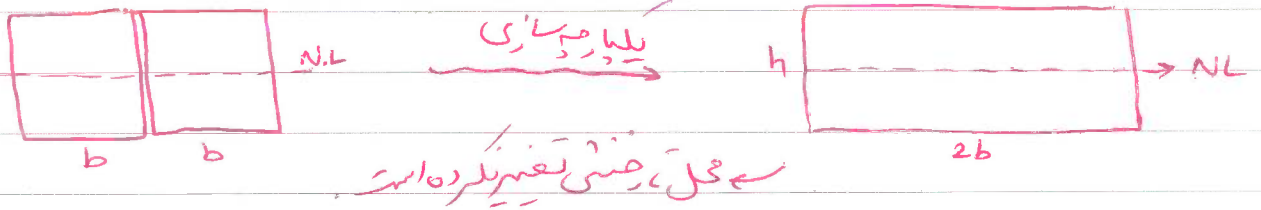 یکپارچه سازی
N.L
h
NL
b b
2b
محل تار خنثی تغییر نکرده است